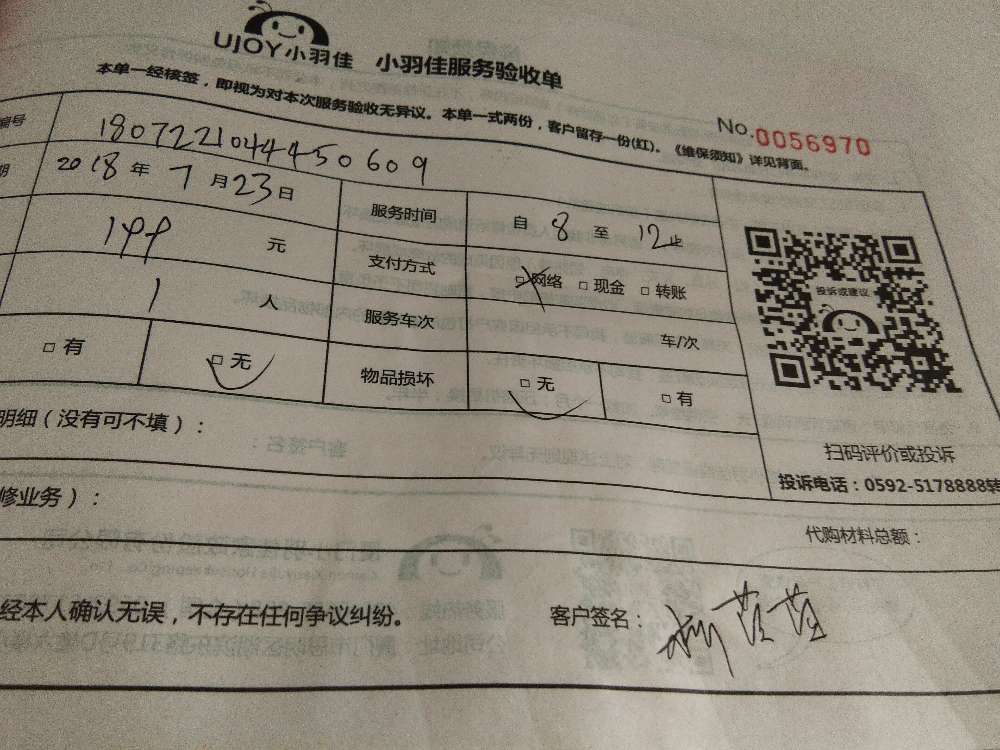 UJOY小羽佳 小羽佳服务验收单
本单一经核签，即视为对本次服务验收无异议。本单一式两份，客户留存一份(红)。《维保须知》详见背面。
No.0056970
编号 180722104450609
期 2018年7月23日 服务时间 自8至12止
199元 支付方式 □网络 □现金 □转账
1人 服务车次 车/次
□有 □无 物品损坏 □无 □有
投诉或建议
扫码评价或投诉
投诉电话：0592-5178888转
明细（没有可不填）：
修业务）： 代购材料总额：
经本人确认无误，不存在任何争议纠纷。 客户签名：